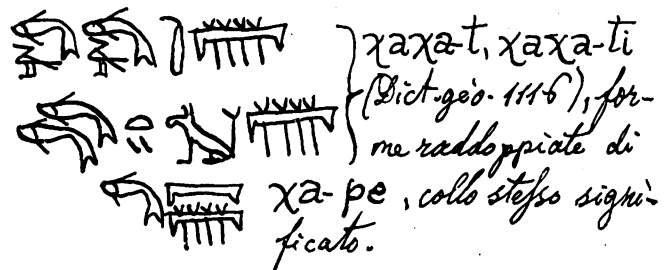 χaχa-t, χaχa-ti
(Dict. géo. 1116), for-
me raddoppiate di
χa-pe, collo stesso signi-
ficato.